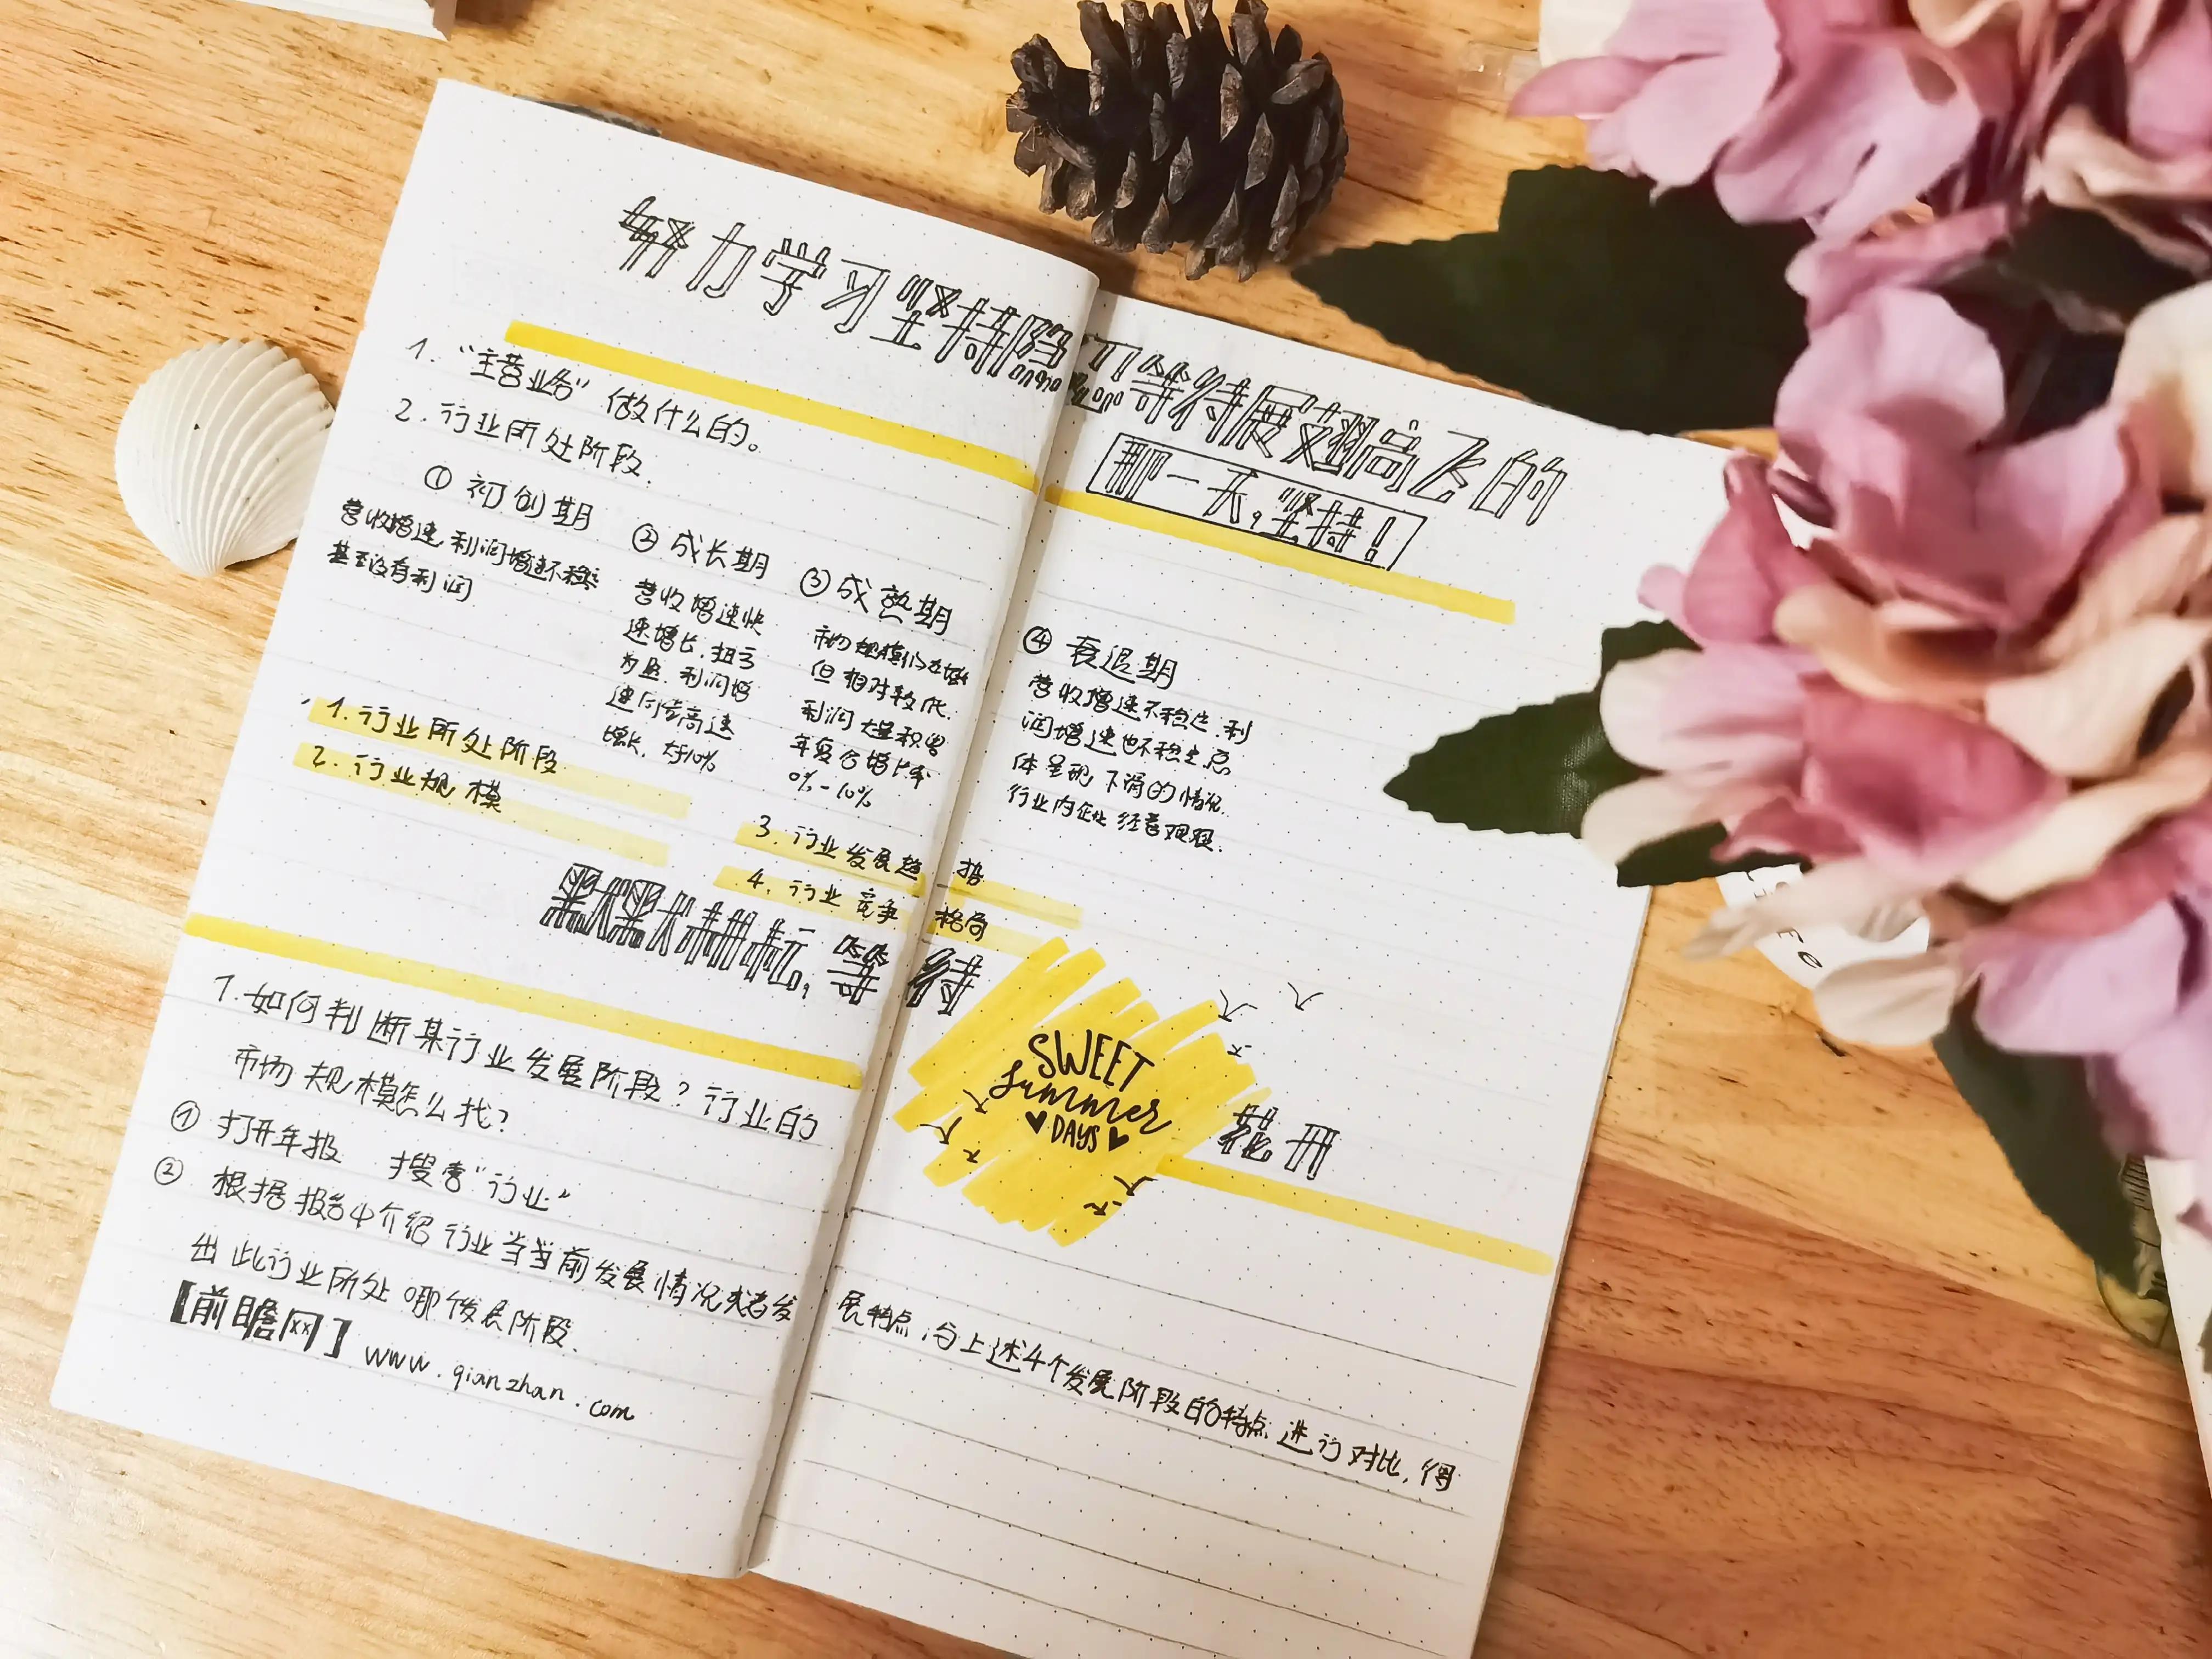 努力学习坚持隐忍等待展翅高飞的
那一天,坚持!
1. "主营业务" 做什么的。
2. 行业所处阶段.
① 初创期
营收增速,利润增速不稳定
甚至没有利润
② 成长期
营收增速快
速增长.扭亏
为盈.利润增
速同步高速
增长.大于10%
③ 成熟期
市场规模仍在增
但相对较低.
利润大量积累
年复合增长率
0%-10%
④ 衰退期
营收增速不稳定.利
润增速也不稳定总
体呈现下滑的情况.
行业内企业经营艰难.
1. 行业所处阶段
2. 行业规模
3. 行业发展趋
4. 行业竞争格局
默默耕耘,等待
SWEET
summer
DAYS
花开
1.如何判断某行业发展阶段?行业的
市场规模怎么找?
① 打开年报 搜营"行业"
② 根据报告中介绍行业当当前发展情况或者发
展特点,与上述4个发展阶段的特点进行对比,得
出此行业所处哪个发展阶段.
【前瞻网】 www.qianzhan.com